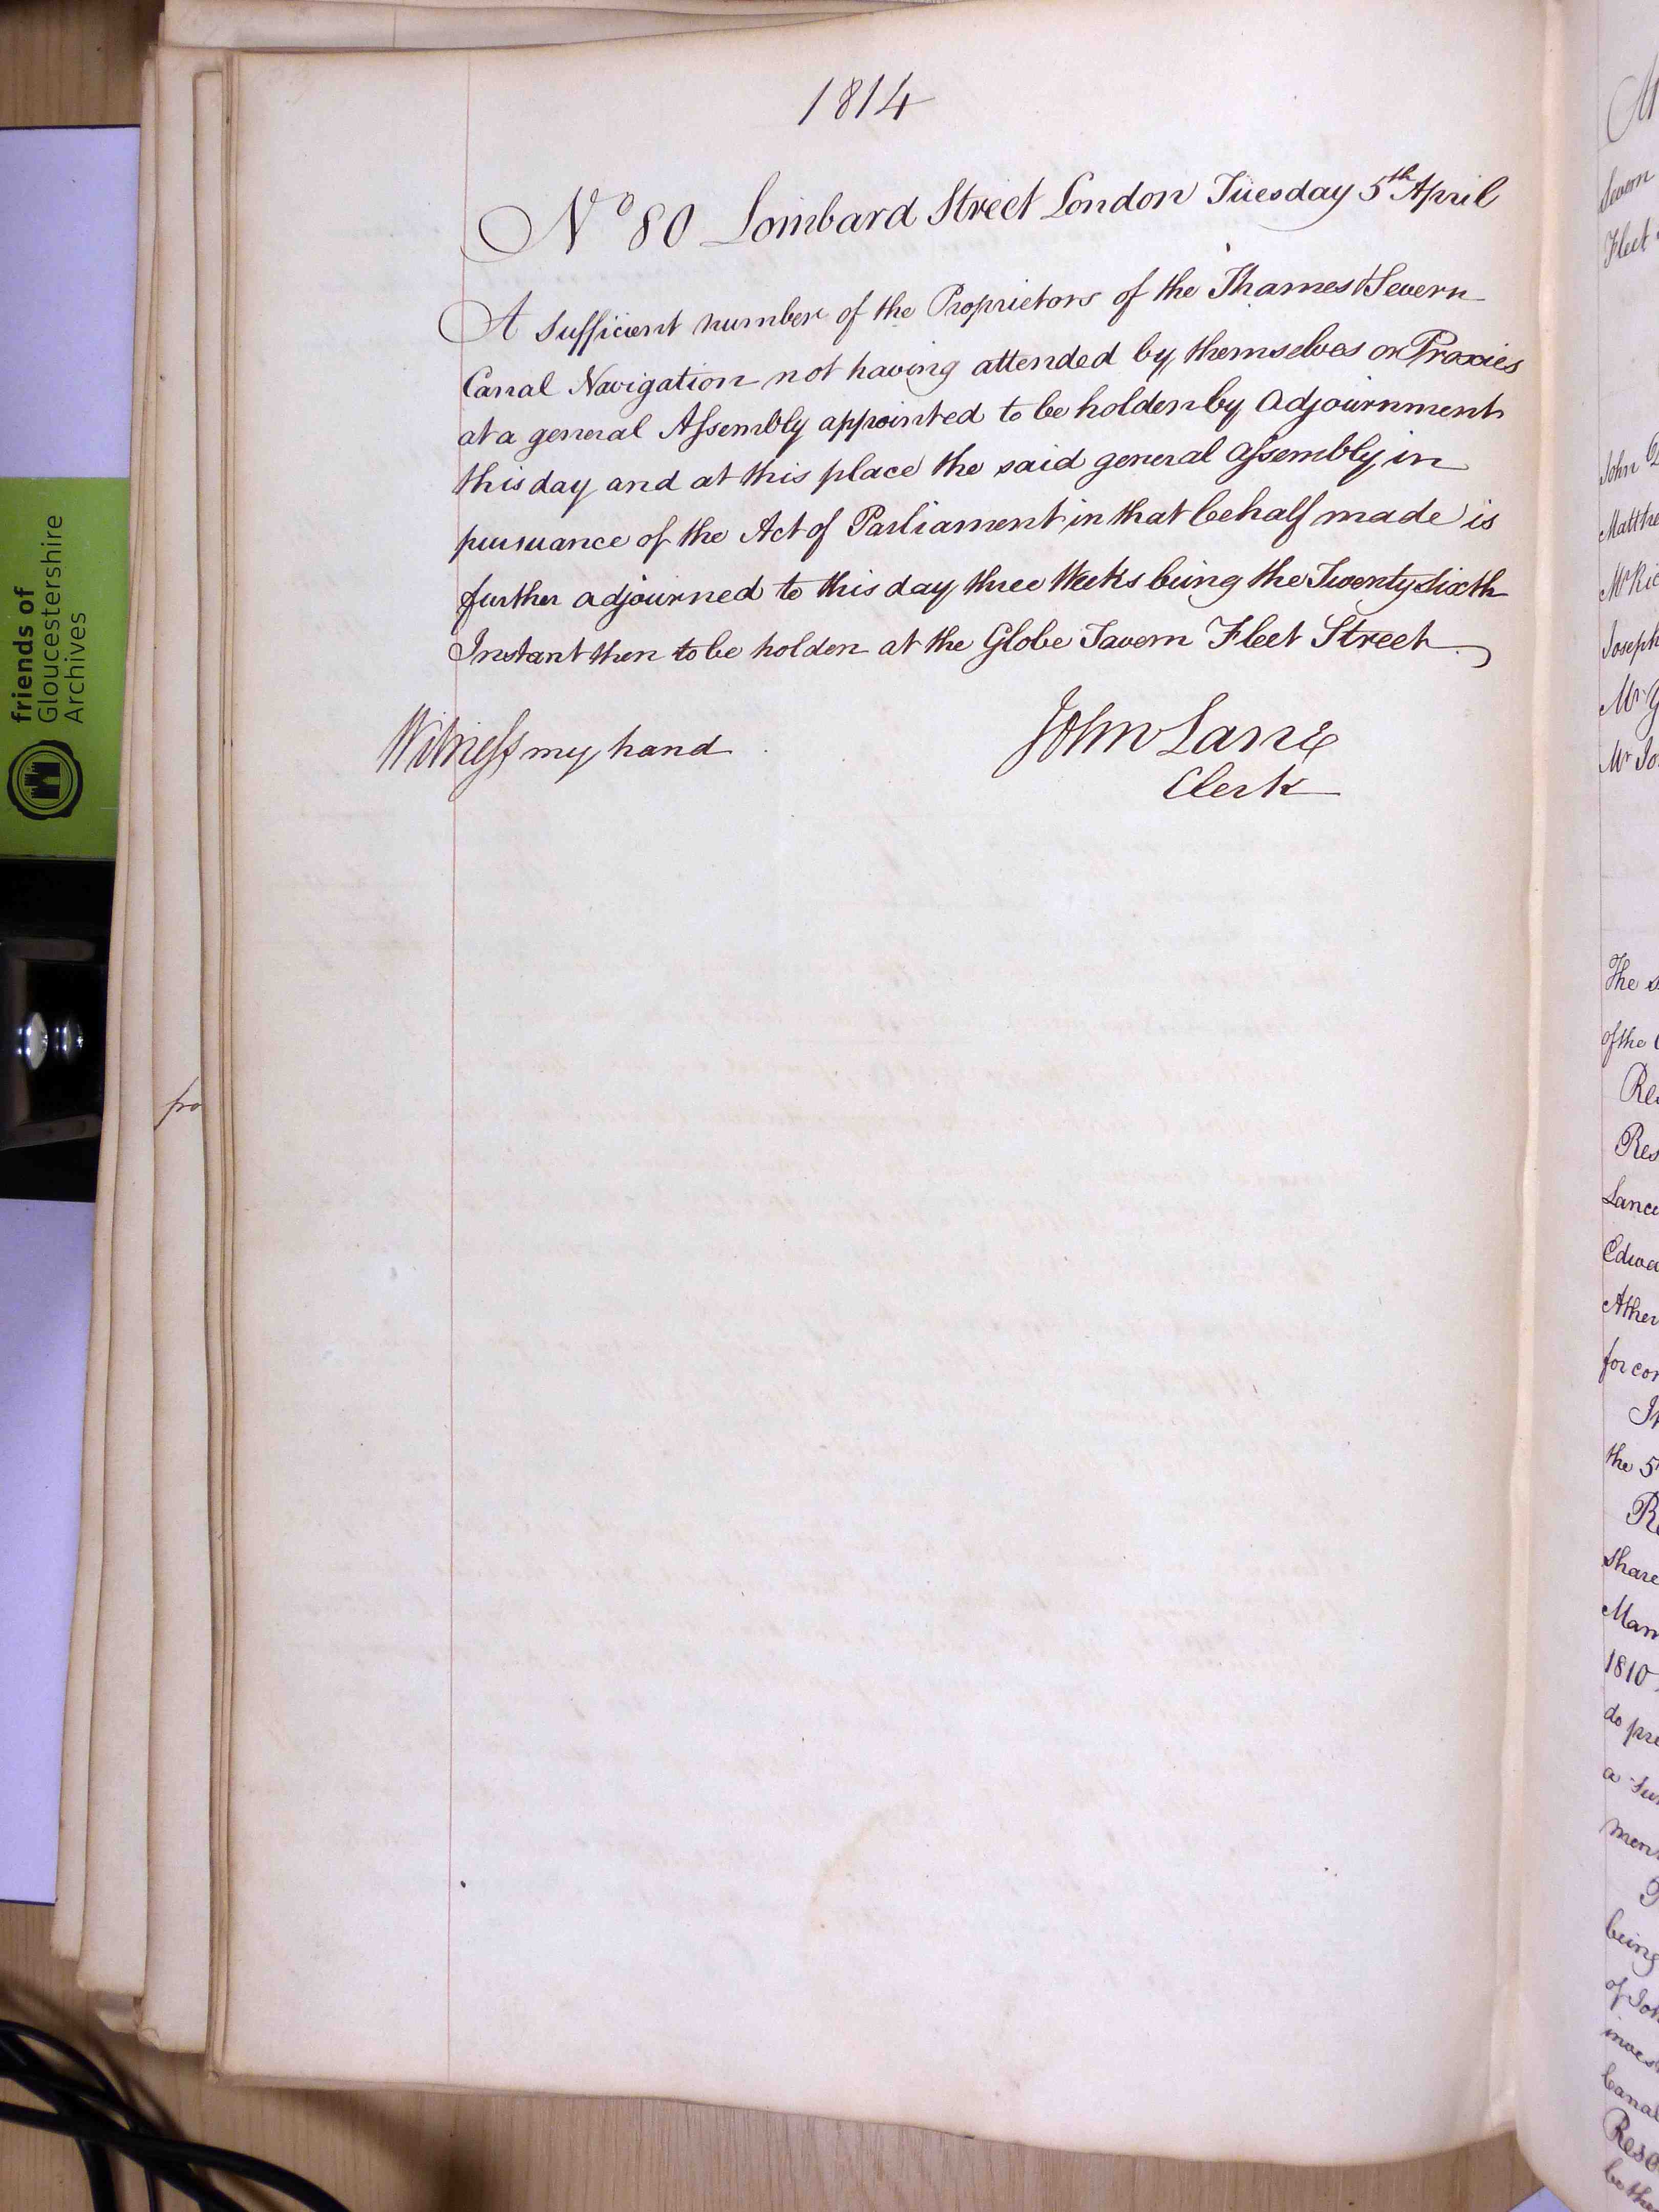 1814
No 80 Lombard Street London Tuesday 5th April
A Sufficient number of the Proprietors of the Thames & Severn
Canal Navigation not having attended by themselves or Proxies
at a general Assembly appointed to be holden by Adjournment
this day and at this place the said general Assembly in
pursuance of the Act of Parliament in that behalf made is
further adjourned to this day three Weeks being the Twenty Sixth
Instant then to be holden at the Globe Tavern Fleet Street
Witness my hand
John Lane
Clerk
friends of
Gloucestershire
Archives
pro
Severn
Fleet
John
Matthe
Mr Ric
Joseph
Mr G
Mr Jo
The s
of the
Res
Lance
Edwa
Ather
for con
It
the 5
Re
Share
Man
1810
do pre
a Su
men
being
of Joh
inves
Canal
Reso
be the